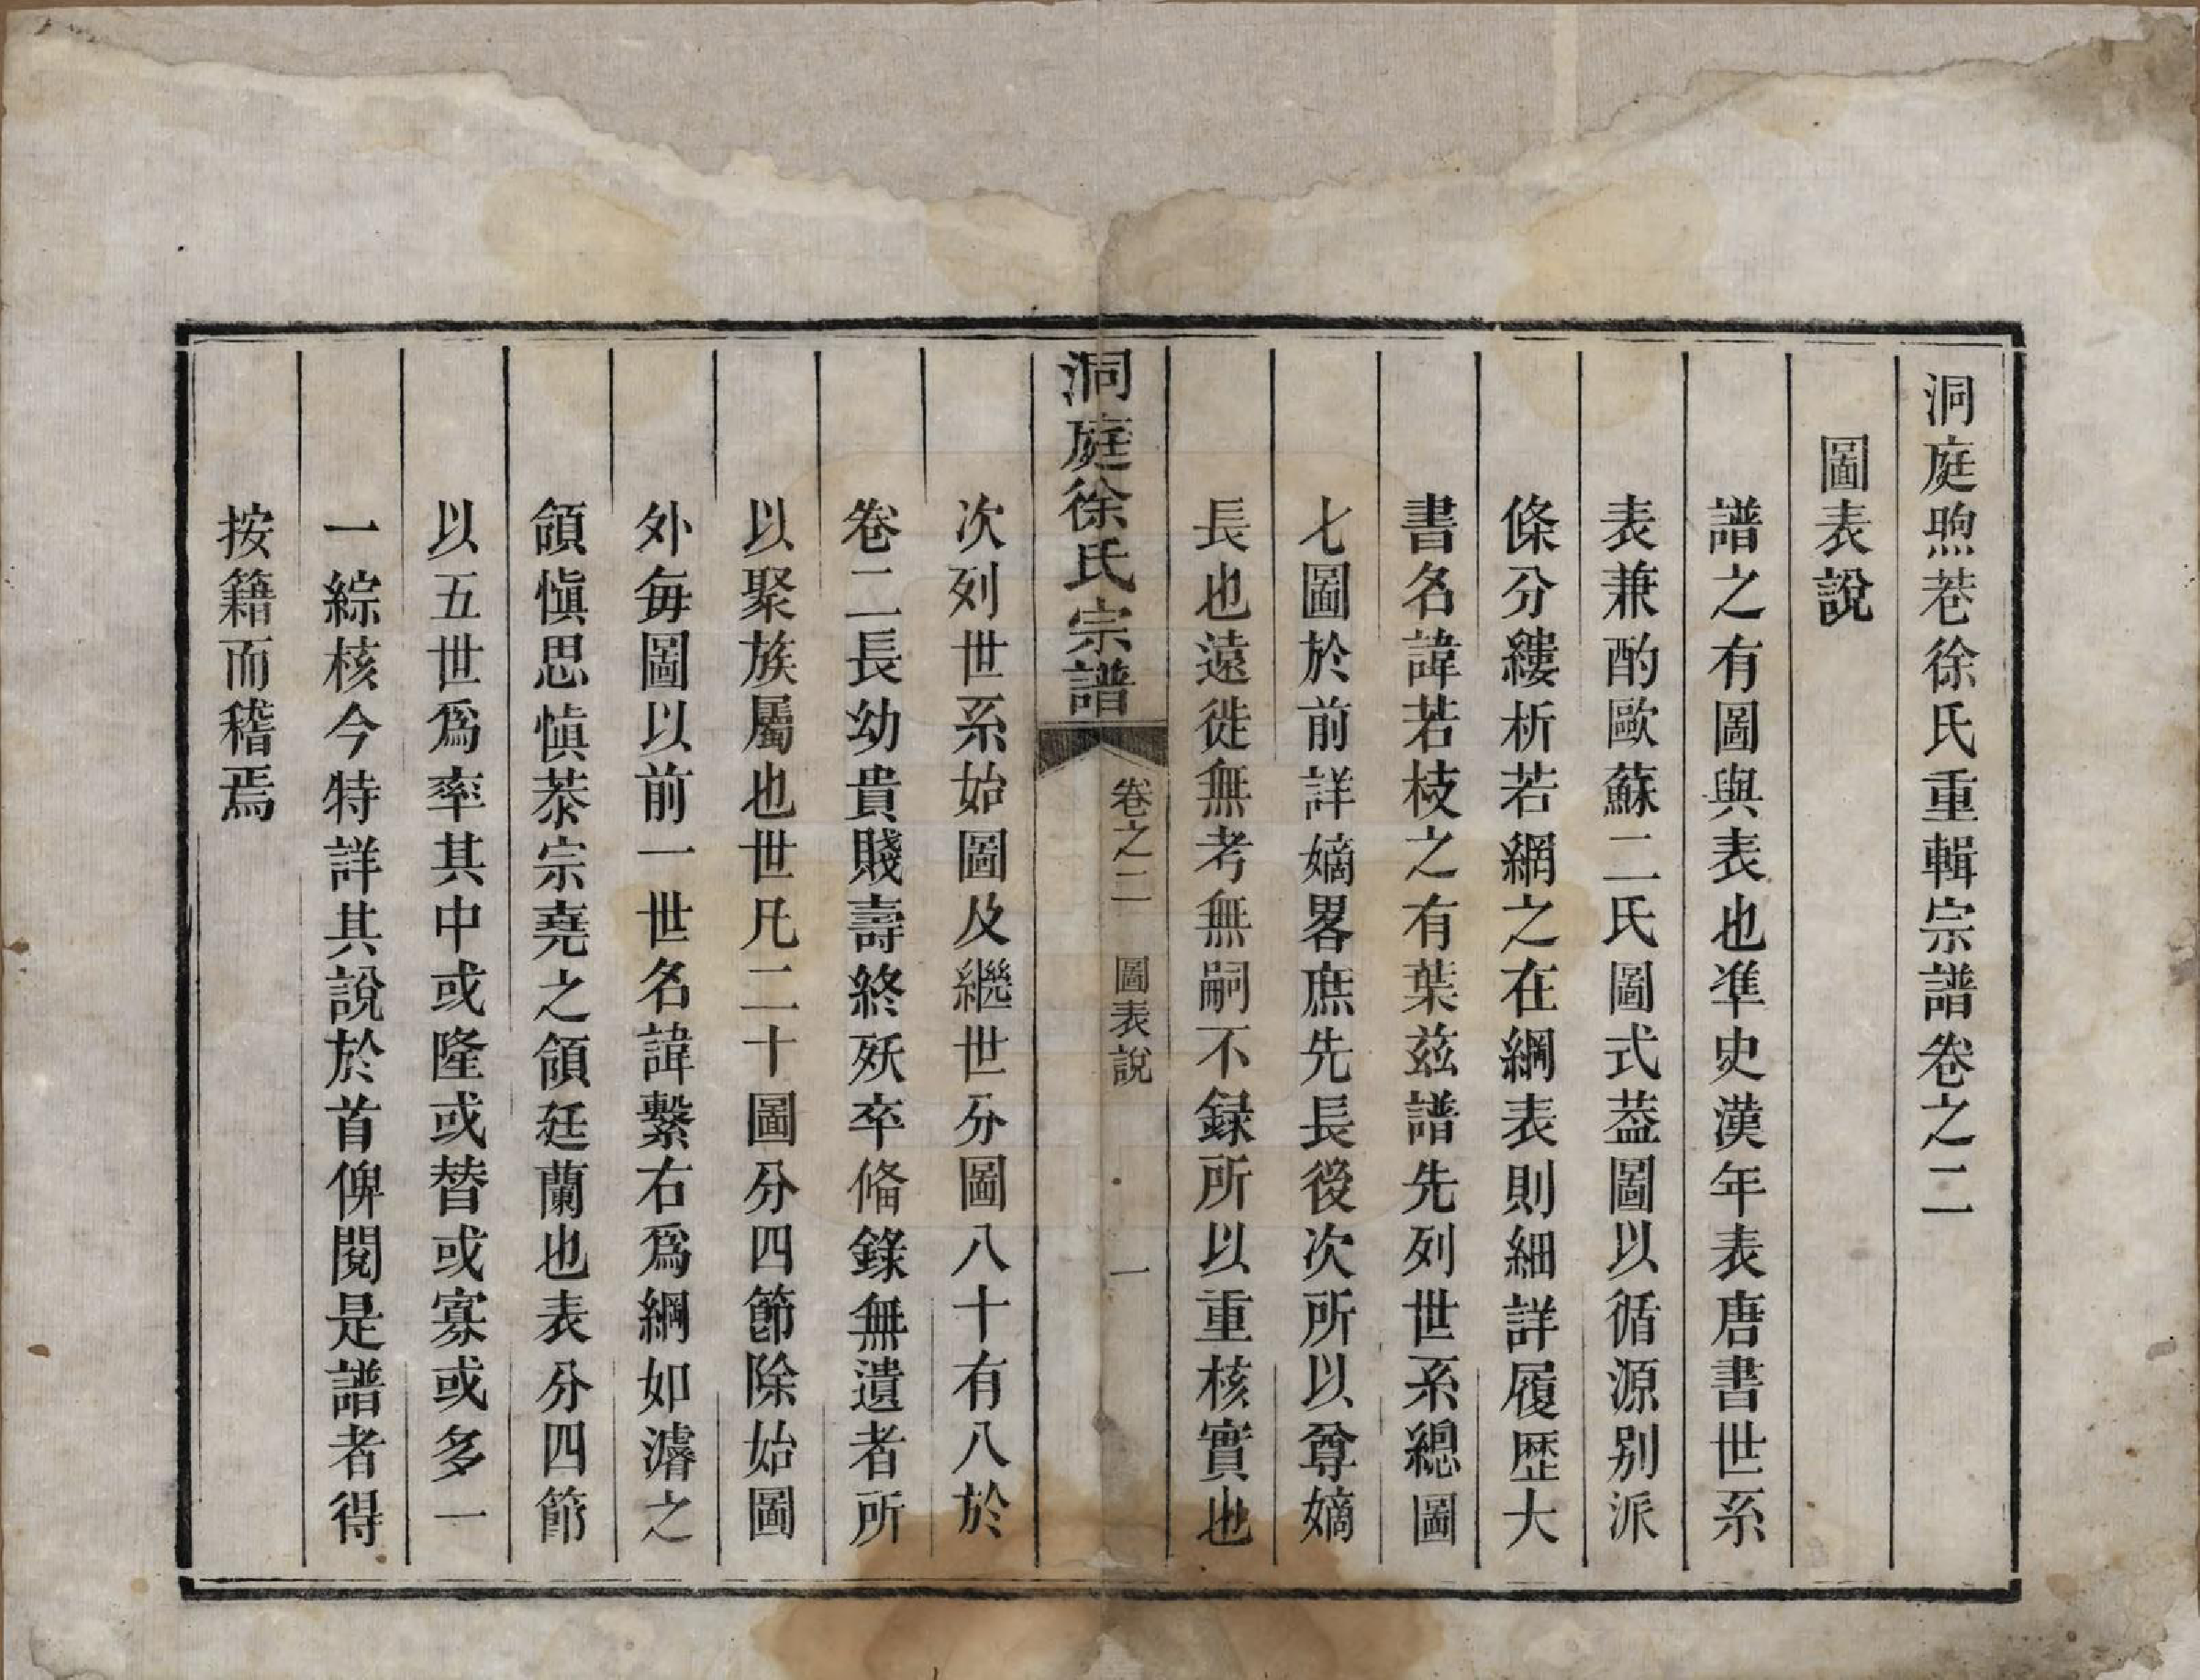 洞庭煦巷徐氏重輯宗譜卷之二
圖表說
譜之有圖與表也準史漢年表唐書世系
表兼酌歐蘇二氏圖式葢圖以循源別派
條分縷析若網之在綱表則細詳履歷大
書名諱若枝之有葉兹譜先列世系總圖
七圖於前詳嫡畧庶先長後次所以尊嫡
長也遠徙無考無嗣不録所以重核實也
洞庭徐氏宗譜
卷之二 圖表說 一
次列世系始圖及繼世分圖八十有八於
卷二長幼貴賤壽終殀卒俻錄無遺者所
以聚族屬也世凡二十圖分四節除始圖
外每圖以前一世名諱繫右爲綱如濬之
領愼思愼㳟宗堯之領廷蘭也表分四節
以五世爲率其中或隆或替或寡或多一
一綜核今特詳其說於首俾閱是譜者得
按籍而稽焉